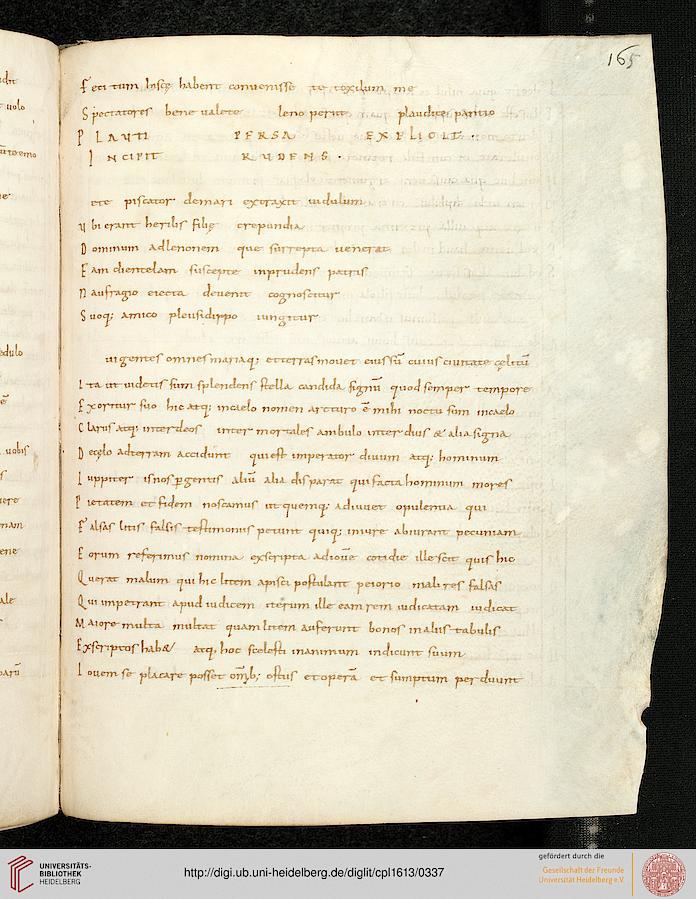 165
Feci tum hisce habent convenisse te toxilum me
Spectatores bene valete leno periit plaudite pantio
PLAUTI PERSA EXPLICIT.
INCIPIT RUDENS.
ete piscator demari extraxit vidulum
Ubi erant herilis filię crepundia
Dominum adlenonem que surrepta venerat
Eam clientelam suscepte inprudens patris
Naufragio eiecta devenit cognoscitur
Suoq; amico pleusidippo iungitur
ui gentes omnes mariaq; et terras movet eius sū cuius civitate cęlitū
Ita ut videtis sum splendens stella candida signū quod semper tempore
Exoritur suo hic atq; incaelo nomen arcturo ē mihi noctu sum incaelo
Clarus atq; inter deos inter mortales ambulo inter dius & alia signa
Decęlo adterram accidunt qui est imperator divum atq; hominum
Iuppiter is nos pgentis aliū alia disparat qui facta hominum mores
Pietatem et fidem noscamus ut quemq; adiuvet opulentia qui
Falsas litis falsis testimoniis petunt quiq; iniure abiurant pecuniam
Eorum referimus nomina exscripta adiovē cotidie ille scit quis hic
Querat malum qui hic litem apisci postulant peiorio mali res falsas
Qui inpetrant apud iudicem iterum ille eam rem iudicatam iudicat
Maiore multa multat quam litem auferunt bonos in aliis tabulis
Exscriptos hab& atq; hoc scelesti inanimum indicunt suum
Iovem se placare posset omīb; ostiis et operā et sumptum perduunt
UNIVERSITÄTS-
BIBLIOTHEK
HEIDELBERG
http://digi.ub.uni-heidelberg.de/diglit/cpl1613/0337
gefördert durch die
Gesellschaft der Freunde
Universität Heidelberg e.V.